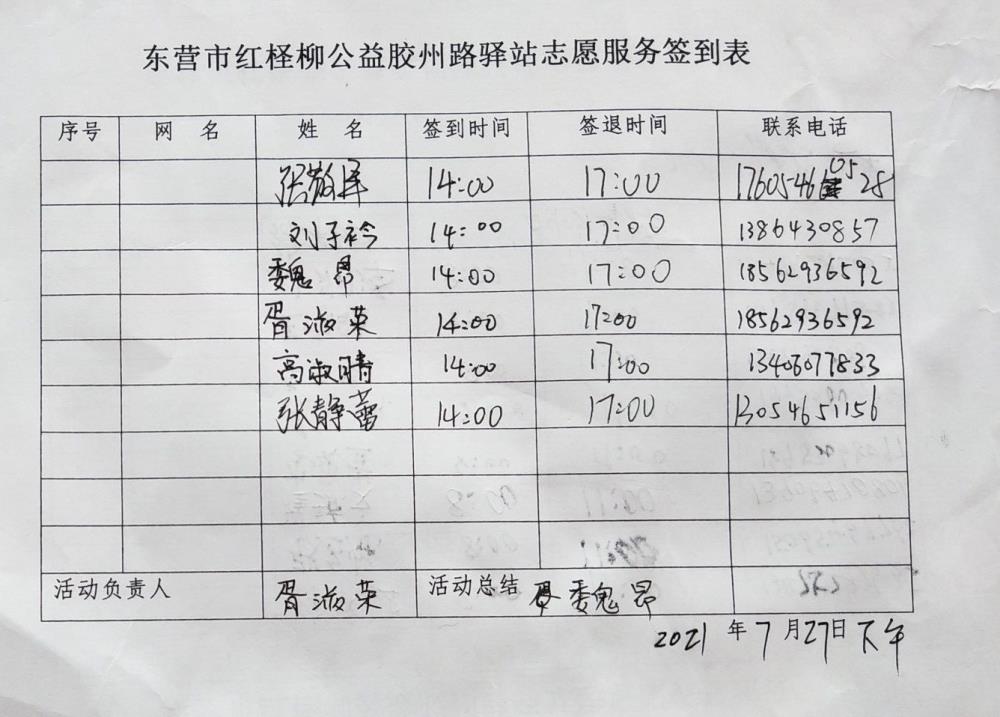 东营市红柽柳公益胶州路驿站志愿服务签到表
序号 网 名 姓 名 签到时间 签退时间 联系电话
张敬泽 14:00 17:00 17605460528
刘子衿 14:00 17:00 1386430857
魏昂 14:00 17:00 18562936592
胥淑荣 14:00 17:00 18562936592
高淑晴 14:00 17:00 13406077833
张静蕾 14:00 17:00 13054651156
活动负责人 胥淑荣 活动总结 魏昂
2021 年 7 月 27日 下午